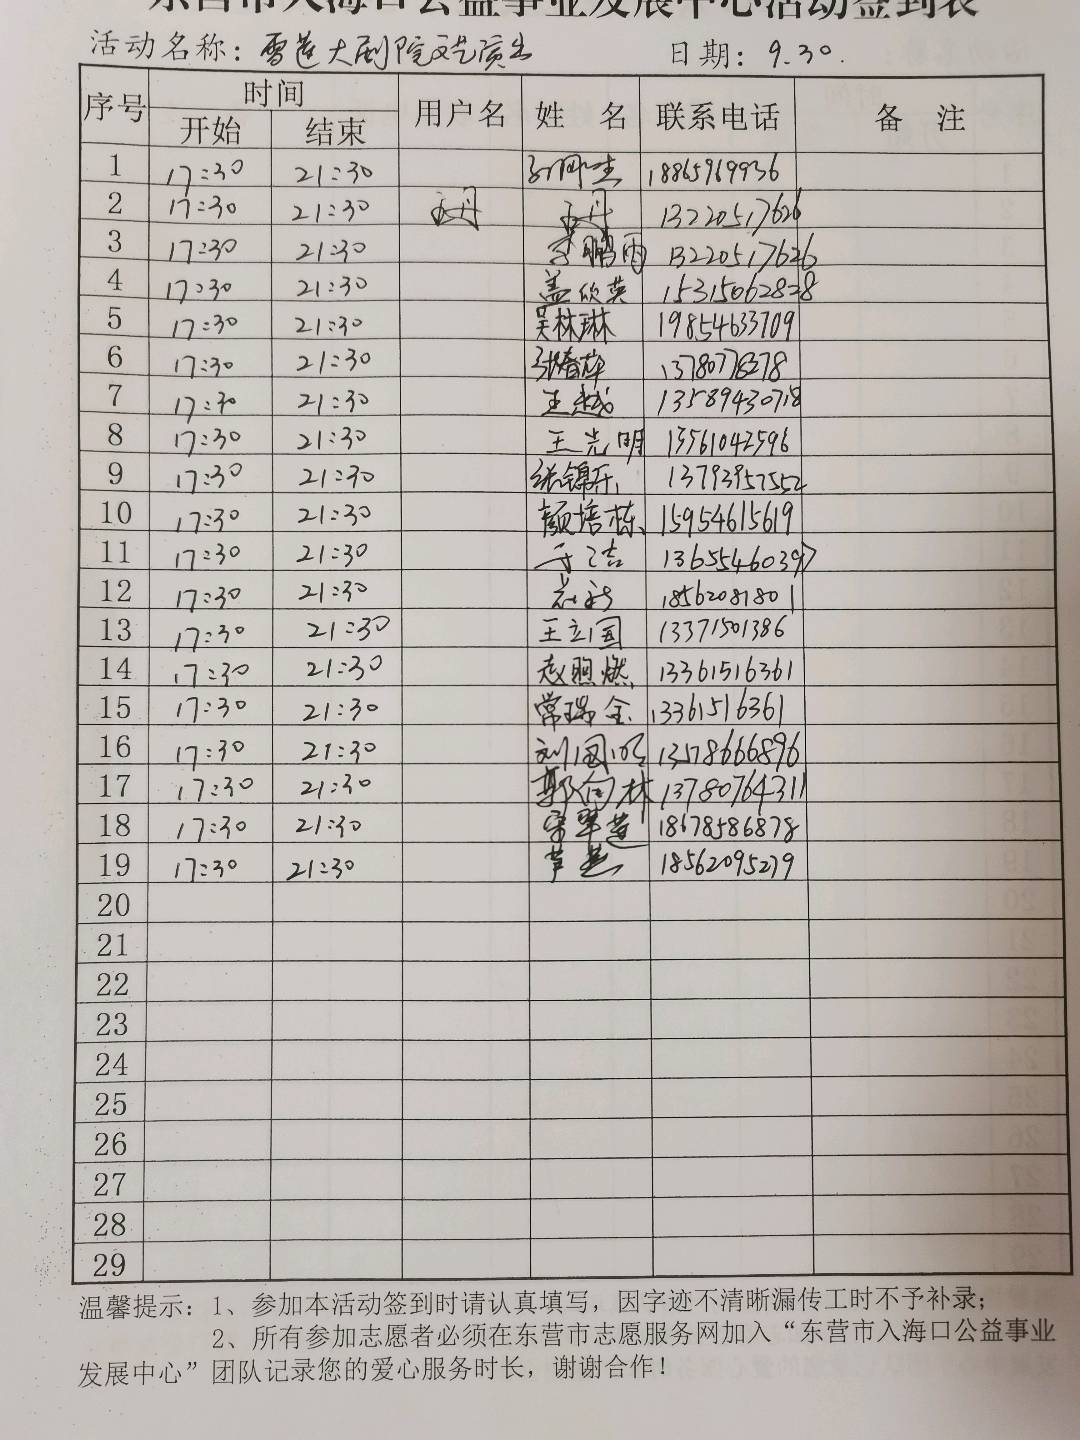 东营市入海口公益事业发展中心活动签到表
活动名称：雪莲大剧院文艺演出 日期：9.30.
序号 时间 用户名 姓 名 联系电话 备 注
开始 结束
1 17:30 21:30 18865969936
2 17:30 21:30 孟丹 孟丹 13220517626
3 17:30 21:30 李鹏雨 13220517626
4 17:30 21:30 盖欣英 15315062828
5 17:30 21:30 吴林琳 19854633709
6 17:30 21:30 张春萍 13780778278
7 17:30 21:30 王越 13589430718
8 17:30 21:30 王光明 13561042596
9 17:30 21:30 张锦乐 13793957552
10 17:30 21:30 颜培栋 15954615619
11 17:30 21:30 于洁 13655460397
12 17:30 21:30 18562081801
13 17:30 21:30 王立国 13371501386
14 17:30 21:30 赵照燃 13361516361
15 17:30 21:30 常瑞金 13361516361
16 17:30 21:30 刘国明 13578666896
17 17:30 21:30 郭向林 13780764311
18 17:30 21:30 宋翠莲 18678586878
19 17:30 21:30 18562095279
20
21
22
23
24
25
26
27
28
29
温馨提示：1、参加本活动签到时请认真填写，因字迹不清晰漏传工时不予补录；
2、所有参加志愿者必须在东营市志愿服务网加入“东营市入海口公益事业
发展中心”团队记录您的爱心服务时长，谢谢合作！